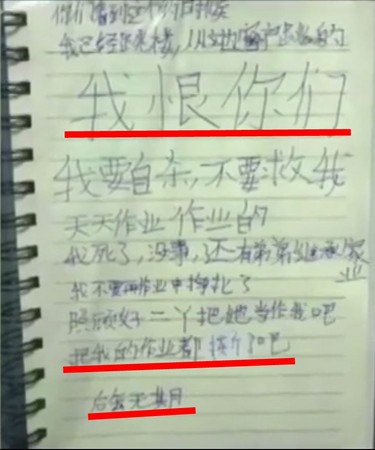 你们看到这个的时候
我已经
我恨你们
我要自杀,不要救我
天天作业 作业的
我死了,没事,还有弟弟继承家
业
我不要再作业中挣扎了
照顾好二丫把她当作我吧
把我的作业都撕了吧
后会无期